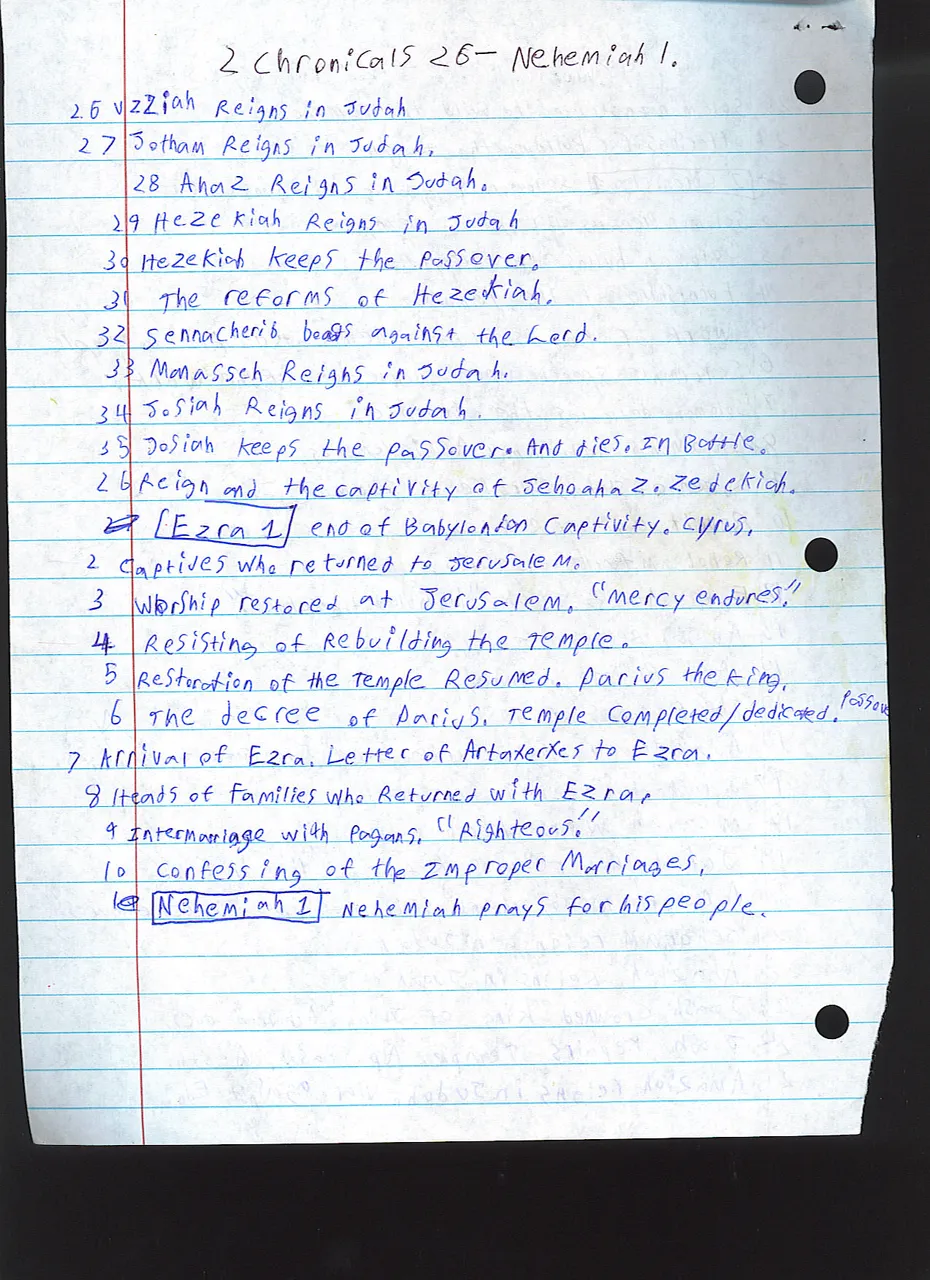 2 Chronicals 26- Nehemiah 1.
26 Uzziah Reigns in Judah
27 Jotham Reigns in Judah.
28 Ahaz Reigns in Judah.
29 Hezekiah Reigns in Judah
30 Hezekiah keeps the Passover.
31 The reforms of Hezekiah.
32 Sennacherib boags against the Lord.
33 Manasseh Reighs in Judah.
34 Josiah Reigns in Judah.
35 Josiah keeps the passover. And dies. In Battle.
26 Reign and the captivity of Jehoahaz. Zedekiah.
[Ezra 1] end of Babylondon Captivity. Cyrus.
2 Captives who returned to Jerusalem.
3 Worship restored at Jerusalem. "Mercy endures."
4 Resisting of Rebuilding the Temple.
5 Restoration of the Temple Resumed. Darius the King.
6 The decree of Darius. Temple Completed/dedicated. Passov
7 Arrival of Ezra. Letter of Artaxerxes to Ezra.
8 Heads of families who Returned with Ezra.
9 Intermarriage with Pagans. "Righteous."
10 Confessing of the Improper Marriages.
Nehemiah 1 Nehemiah prays for his people.